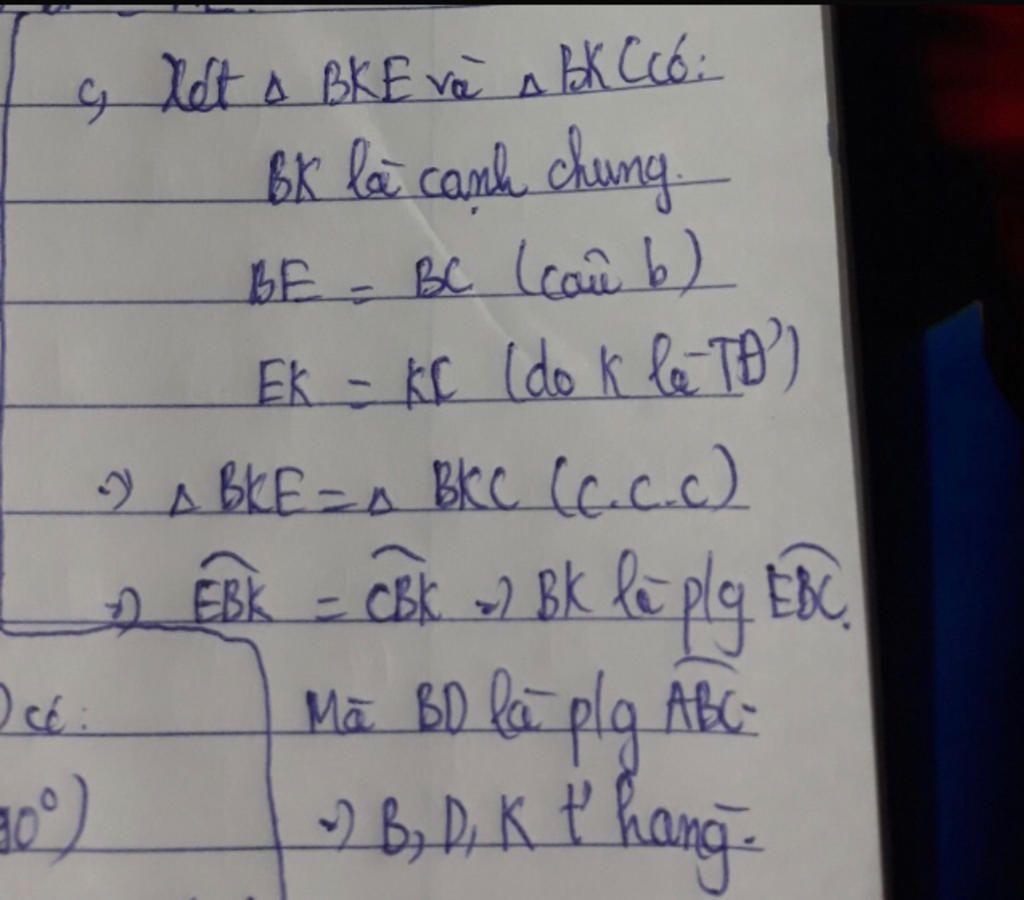 c, Xét Δ BKE và Δ BKC có:
BK là cạnh chung.
BE = BC (câu b)
EK = KC (do K là TĐ')
=> Δ BKE = Δ BKC (c.c.c)
=> \widehat{EBK} = \widehat{CBK} => BK là p/g \widehat{EBC}.
Mà BD là p/g \widehat{ABC}.
=> B, D, K t' hàng.
) có:
90°)